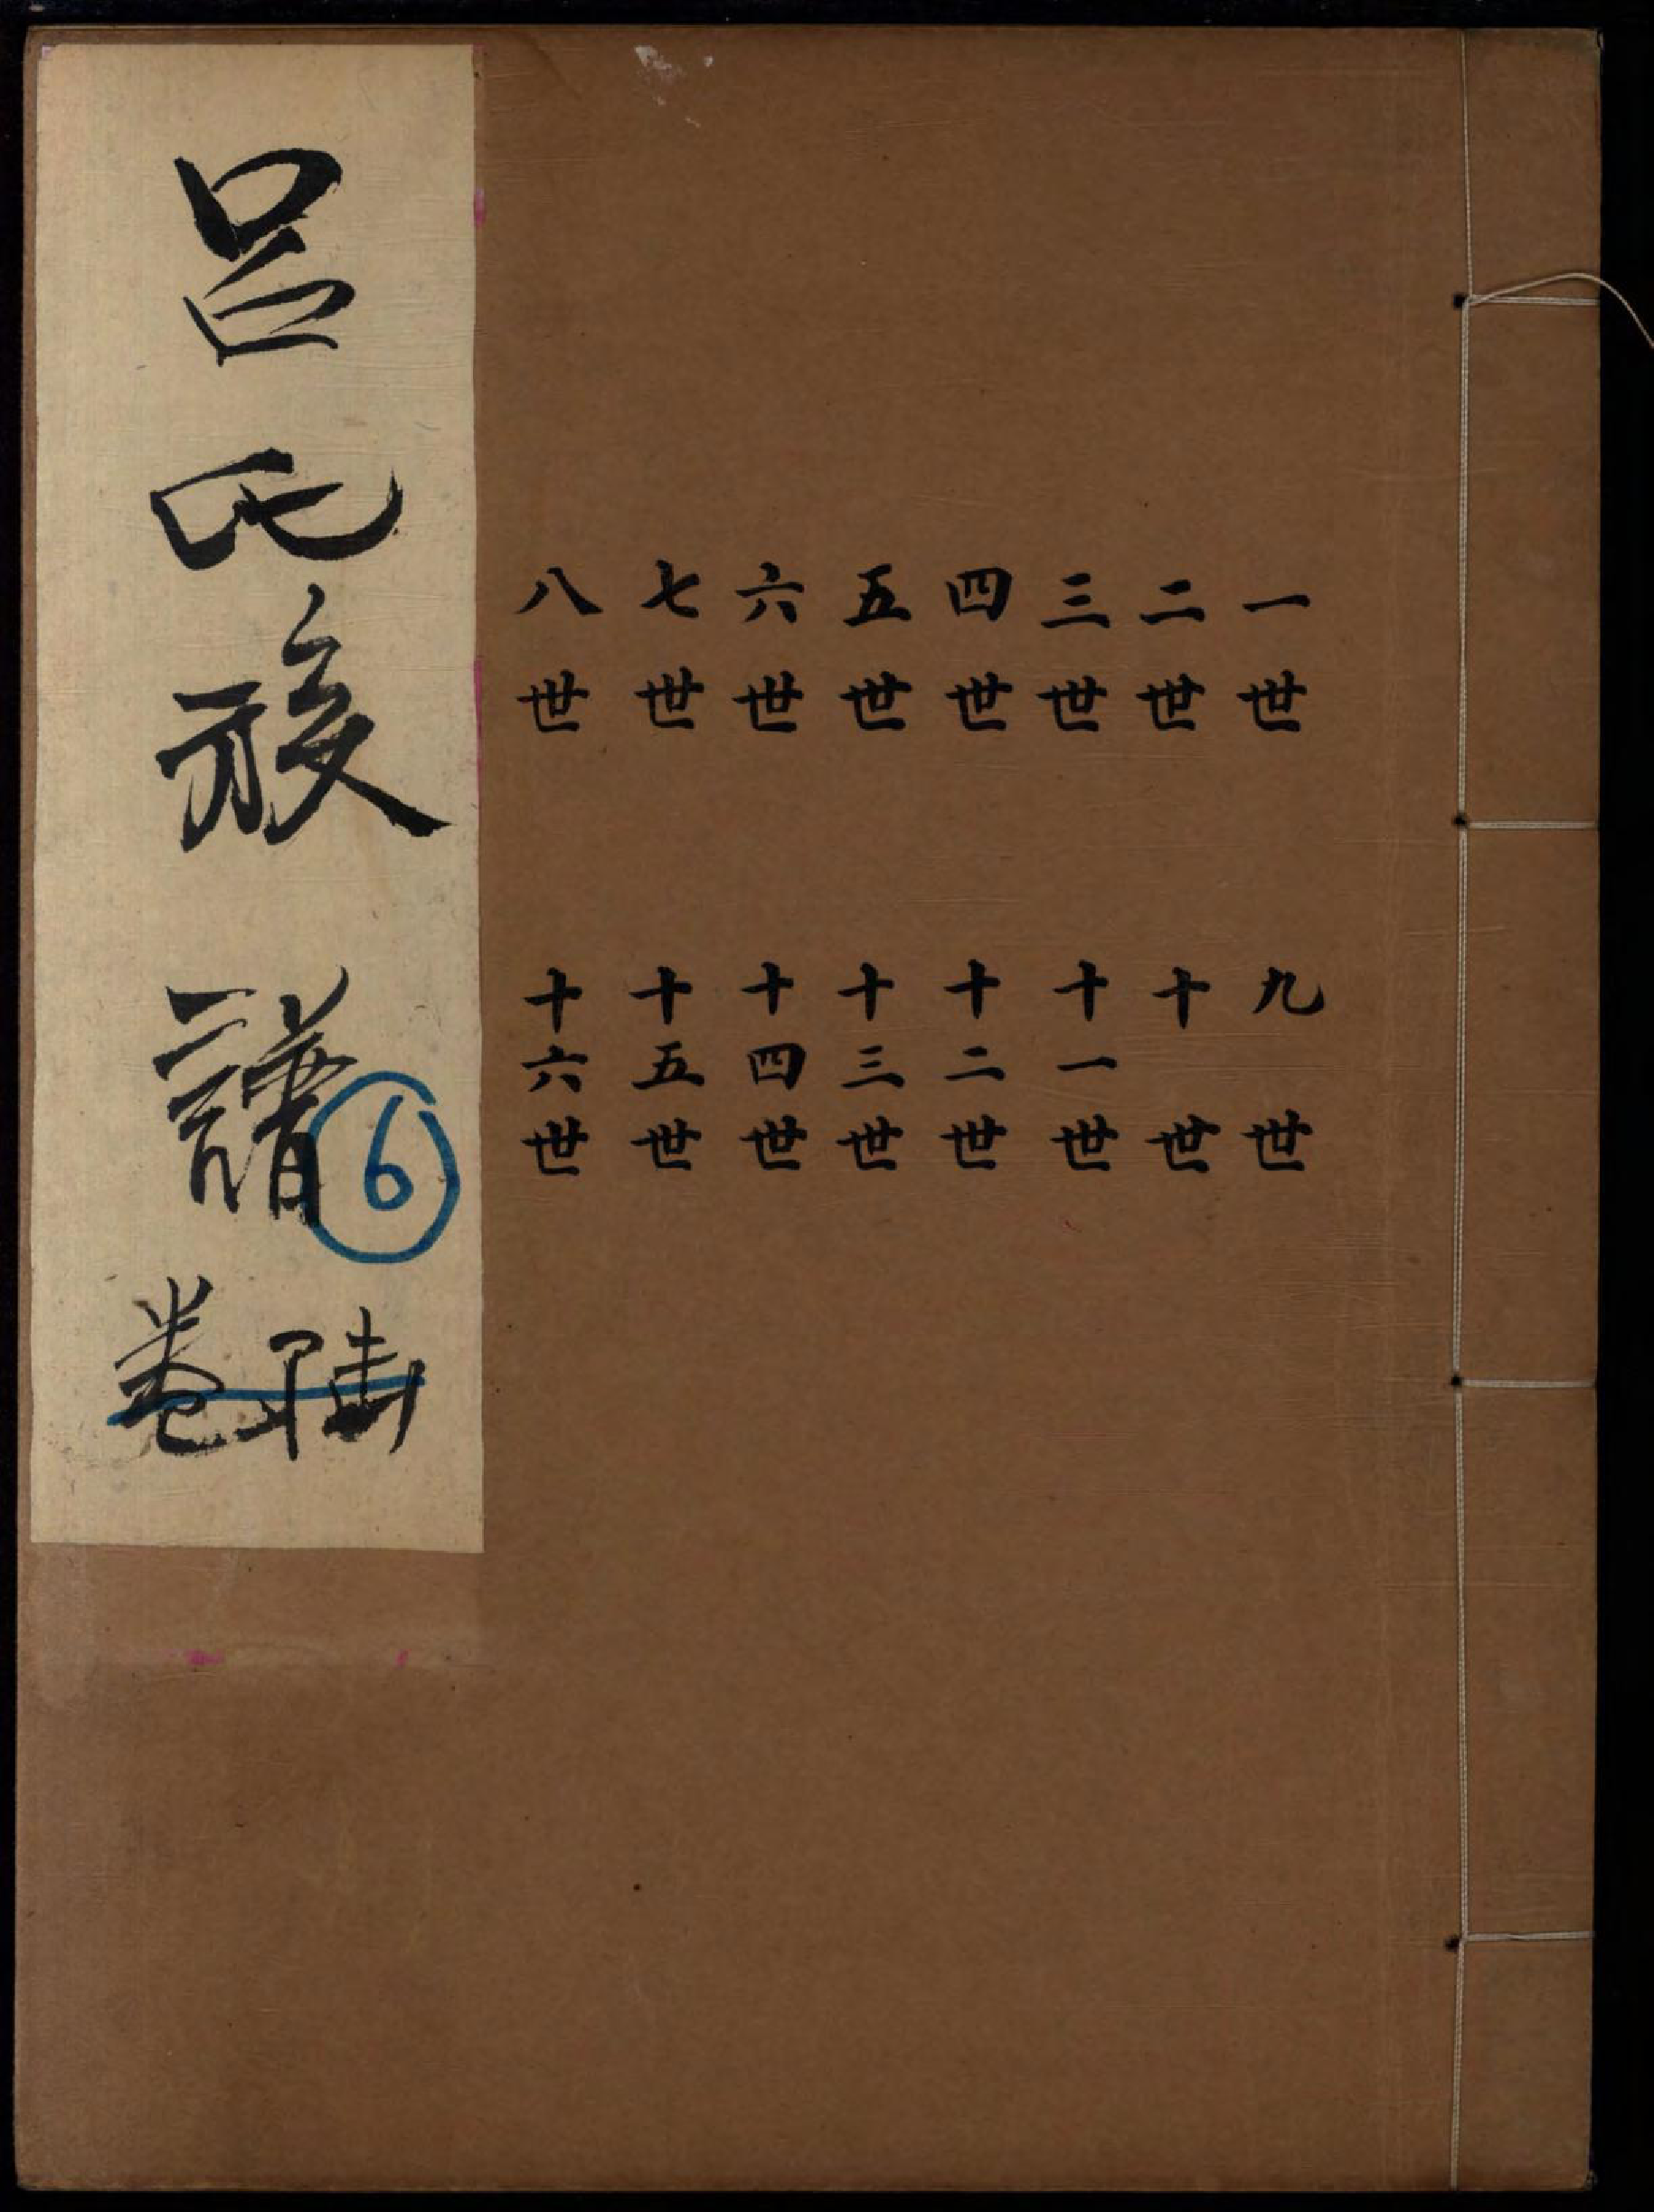 一世
二世
三世
四世
五世
六世
七世
八世
九世
十世
十一世
十二世
十三世
十四世
十五世
十六世
呂氏族譜
6
卷陸